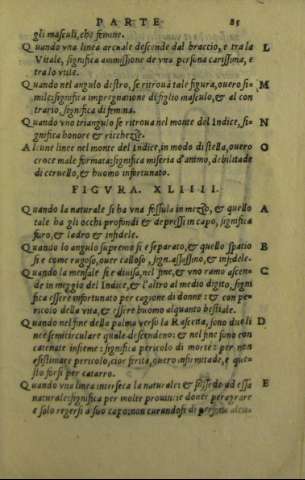 PARTE 85
gli masculi, che femine.
Quando vna linea arcuale descende dal braccio, e tra la L
Vitale, significa ammissione de vna persona carissima, e
tra lo vitle.
Quando nel angulo destro, se ritroua tale figura, ouero si- M
mile: significa impregnatione di figlio masculo, & al con
trario, significa di femina.
Quando vno triangulo se ritroua nel monte del Indice, si- N
gnifica honore & ricchezze.
Alcune linee nel monte del Indice, in modo di stella, ouero O
croce male formata: significa miseria d'animo, debilitade
di ceruello, & huomo infortunato.
FIGVRA. XLIIII.
Quando la naturale si ha vna fossula in mezo, & quello A
tale ha gli occhi profondi & depressi in capo, significa
furo, & ladro & infidele.
Quando lo angulo supremo si e separato, & quello spatio B
si e come rugoso, ouer calloso, sign. assassino, & infidele.
Quando la mensale si e diuisa, nel fine, & vno ramo ascen- C
de in meggio del Indice, & l'altro al medio digito, signi
fica essere infortunato per cagione di donne: & con pe-
ricolo della vita, & essere huomo alquanto bestiale.
Quando nel fine della palma verso la Rascetta, sono due li D
nee semicirculare quale descendeno: & nel fine sono con
catenate insieme: significa pericolo di morte: per non
essistimare pericolo, cioe ferita, ouero infirmitade, e que-
sto forsi per catarro.
Quando vna linea interseca la naturale: & possede ad essa E
naturale: significa per molte prouincie douer peragrare
e solo regersi a suo capo: non curandosi di persona alcu-